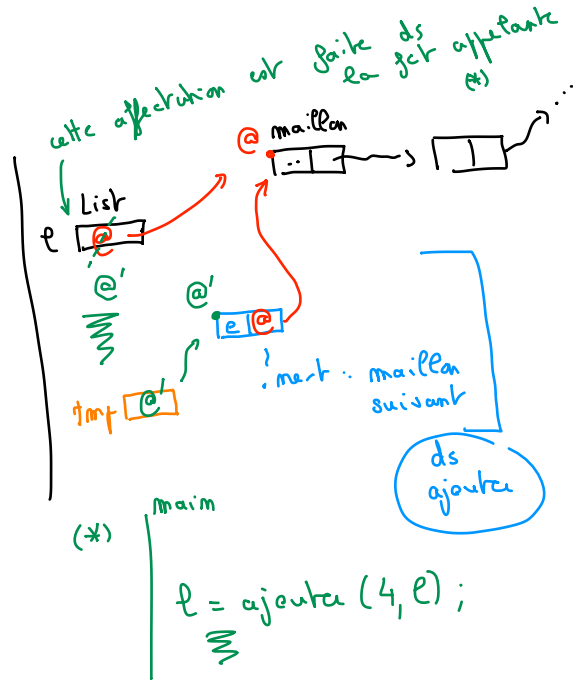 cette affectation est faite ds
la fct appelante
(*)
@ maillon
...
List
l @
..
@'
@'
e @
.next : maillon
suivant
tmp @'
ds
ajouter
(*)
main
l = ajouter (4, l) ;